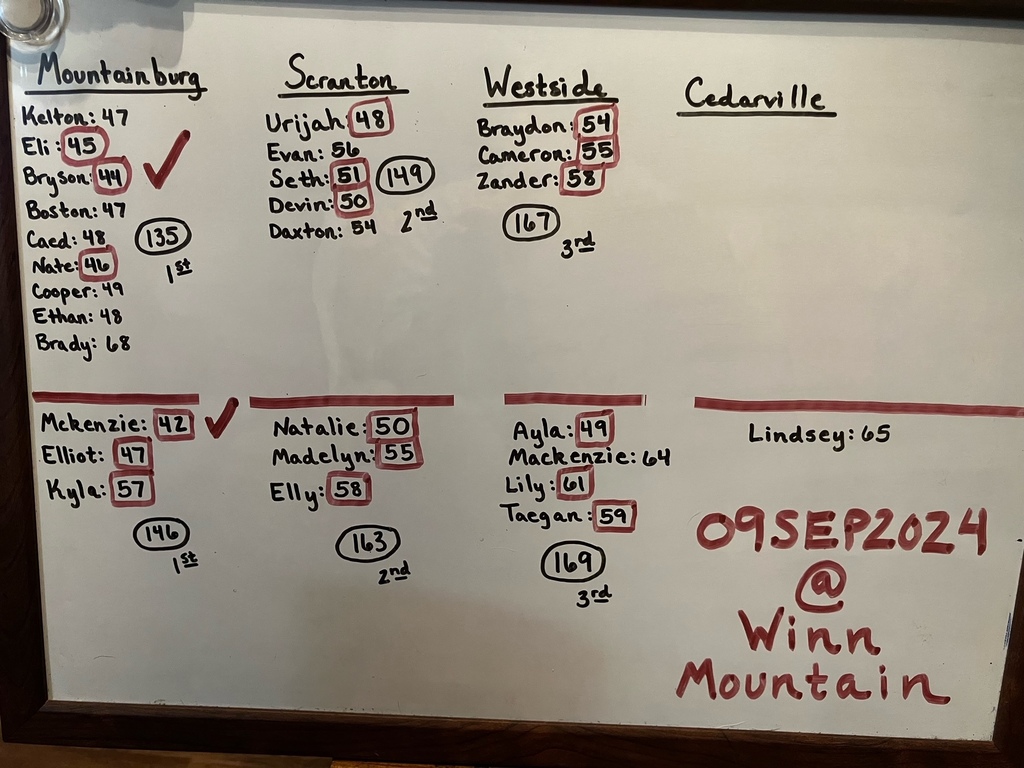 Mountainburg
Kelton: 47
Eli: 45
Bryson: 44
Boston: 47
Caed: 48
Nate: 46
Cooper: 49
Ethan: 48
Brady: 68
135
1st
Scranton
Urijah: 48
Evan: 56
Seth: 51
Devin: 50
Daxton: 54
149
2nd
Westside
Braydon: 54
Cameron: 55
Zander: 58
167
3rd
Cedarville
Mckenzie: 42
Elliot: 47
Kyla: 57
146
1st
Natalie: 50
Madelyn: 55
Elly: 58
163
2nd
Ayla: 49
Mackenzie: 64
Lily: 61
Taegan: 59
169
3rd
Lindsey: 65
09SEP2024
@
Winn
Mountain